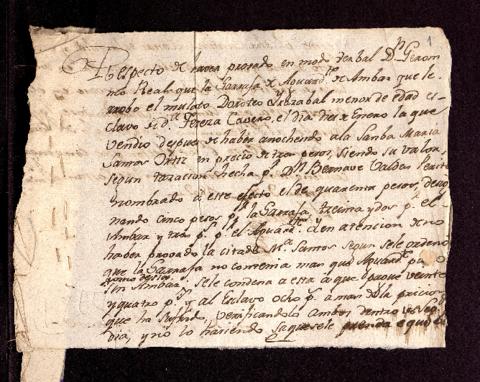 1
Respecto de haver provado en modo verbal Dn Geron
nimo Real que la Garrafa de Aguardte de Ambar que le
rrobo el mulato Doroteo Ysbrabal menor de edad es-
clavo de Da Tereza Cavero el dia tres de Enero la que
vendio depues de haber anochesido a la Samba Maria
Santos Ortiz en precio de tres pesos, siendo su valor
segun tazacion hecha pr Dn Bernave Valdes Perito
nombrado a este efecto el de quarenta pesos, desig
nando cinco pesos pr la Garrafa treinta y dos pr el
Ambar y tres pr el Aguardte. Y en atencion de no
haber provado la citada Ma Santos segun se le ordeno
que la Garrafa no contenia mas que Aguardte
sin Ambar, se le condena a esta a que pague veinte
y quatro ps y al Esclavo ocho ps a mas de la pricion
que ha sufrido, verificandolo Ambos dentro de
dia, y no lo haciendo saquesele prenda equi